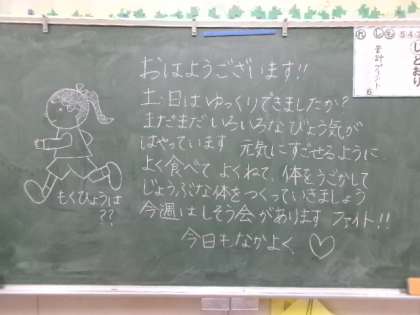 おはようございます!!
土・日はゆっくりできましたか?
まだまだいろいろなびょう気が
はやっています 元気にすごせるように
よく食べて よくねて、体をうごかして
じょうぶな体をつくっていきましょう
今週はしそう会があります ファイト!!
今日もなかよく ♡
もくひょうは
??